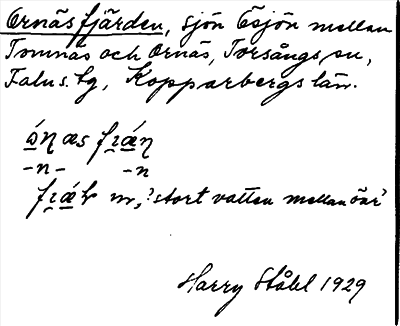 Ornäsfjärden, sjön Ösjön mellan
Tomnäs och Ornäs, Torsångs sn,
Falu s. tg, Kopparbergs län.
-n- -n
m, 'stort vatten mellan öar'
Harry Ståhl 1929